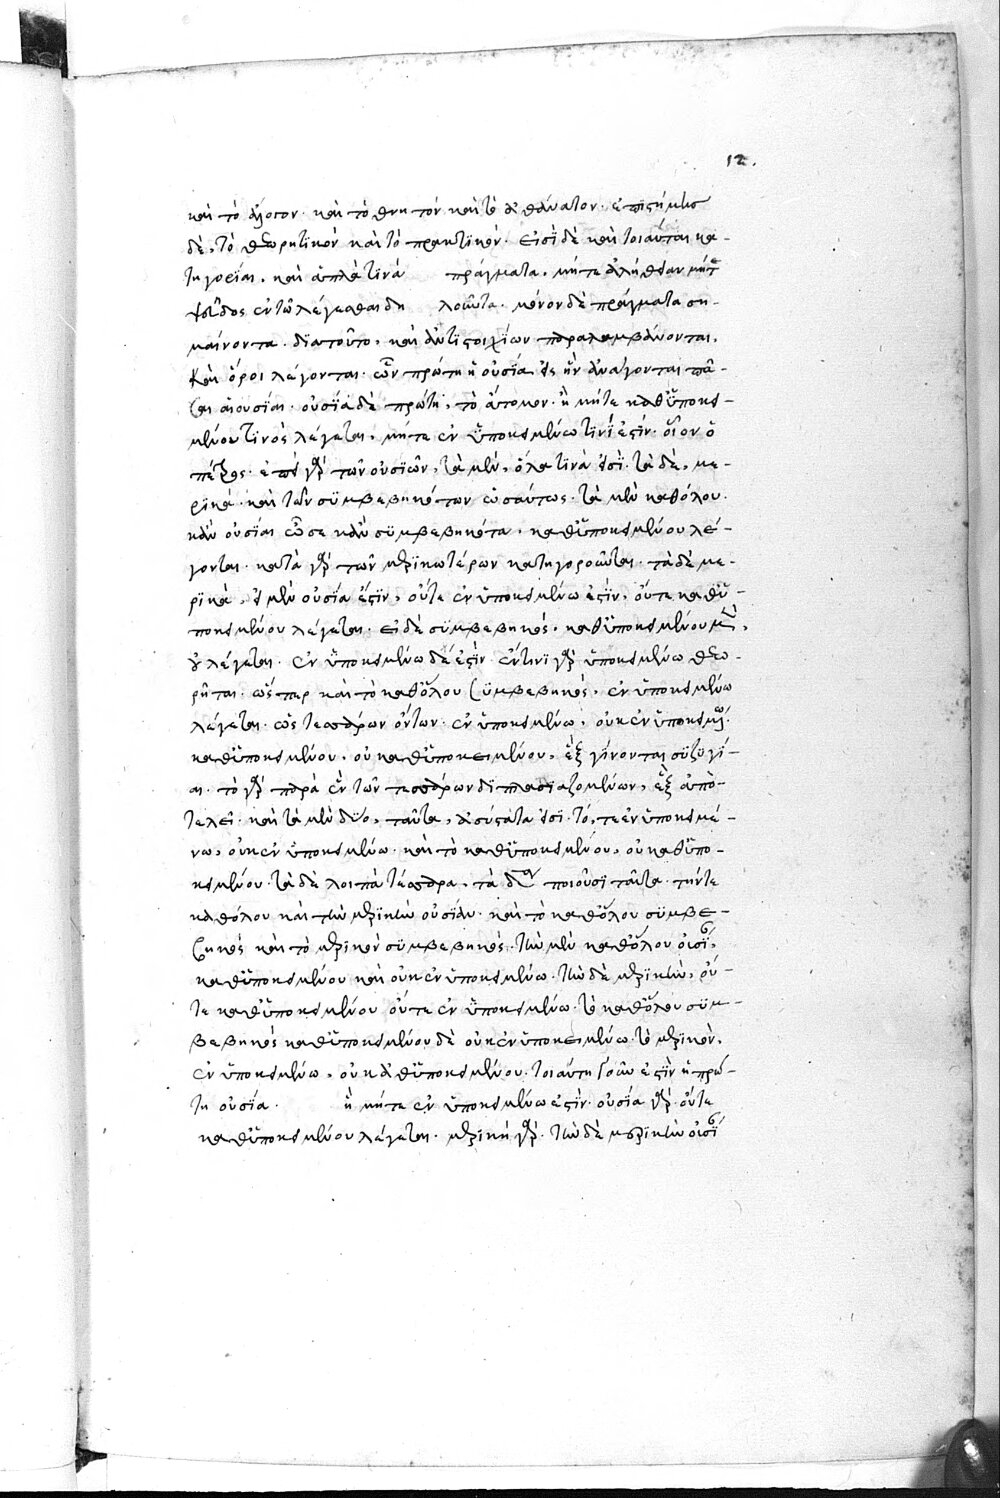 12.
καὶ τὸ ἄλογον· καὶ τὸ θνητόν καὶ τὸ ἀθάνατον· ἐπιστήμης
δὲ, τὸ θεωρητικὸν καὶ τὸ πρακτικόν· εἰσὶ δὲ καὶ τοιαῦται κα-
τηγορίαι, καὶ ἁπλᾶ τινά πράγματα, μήτε ἀλήθειαν μήτε
ψεῦδος ἐν τῶ λέγεσθαι δηλοῦντα· μόνον δὲ πράγματα ση-
μαίνοντα· διατοῦτο, καὶ ἀντιστοιχίων παραλαμβάνονται,
καὶ ὅροι λέγονται· ὧν πρώτη ἡ οὐσία, εἰς ἣν ἀνάγονται πᾶ-
σαι αἱ οὐσίαι· οὐσία δὲ πρώτη, τὸ ἄτομον· ἢ μήτε καθ' ὑποκει-
μένου τινὸς λέγεται, μήτε ἐν ὑποκειμένω τινί ἐστὶν· οἷον ὁ
πέτρος· ἐπεὶ γὰρ τῶν οὐσιῶν, τὰ μὲν, ὅλα τινά εἰσὶ· τὰ δὲ, με-
ρικά· καὶ τῶν συμβεβηκότων ὡσαύτως· τὰ μὲν καθόλου·
κἂν οὐσίαι ὦσι κἂν συμβεβηκότα, καθ' ὑποκειμένου λέ-
γονται· κατὰ γὰρ τῶν μερικωτέρων κατηγοροῦνται· τὰ δὲ με-
ρικὰ, εἰ μὲν οὐσία ἐστὶν, οὔτε ἐν ὑποκειμένω ἐστὶν, οὔτε καθ' ὑ-
ποκειμένου λέγεται· εἰ δὲ συμβεβηκός, καθ' ὑποκειμένου μὲν,
οὐ λέγεται· ἐν ὑποκειμένω δέ ἐστὶν· ἔν τινι γὰρ ὑποκειμένω θεω-
ρεῖται· ὥσπερ καὶ τὸ καθόλου συμβεβηκός, ἐν ὑποκειμένω
λέγεται· ὡς τεσσάρων ὄντων· ἐν ὑποκειμένω, οὐκ ἐν ὑποκειμένω·
καθ' ὑποκειμένου, οὐ καθ' ὑποκειμένου, ἓξ γίνονται συζυγί-
αι· τὸ γὰρ παρὰ ἓν τῶν τεσσάρων διπλασιαζομένων, ἓξ ἀπο-
τελεῖ· καὶ τὰ μὲν δύο, ταῦτα, ἀσύστατα εἰσὶ· τό, τε ἐν ὑποκειμέ-
νω, οὐκ ἐν ὑποκειμένω· καὶ τὸ καθ' ὑποκειμένου, οὐ καθ' ὑπο-
κειμένου· τὰ δὲ λοιπὰ τέσσαρα, τὰ δ ποιοῦσι ταῦτα· τήν τε
καθόλου καὶ τὴν μερικὴν οὐσίαν· καὶ τὸ καθόλου συμβε-
βηκός καὶ τὸ μερικὸν συμβεβηκός· τὴν μὲν καθόλου οὐσίαν,
καθ' ὑποκειμένου καὶ οὐκ ἐν ὑποκειμένω· τὴν δὲ μερικὴν, οὔ-
τε καθ' ὑποκειμένου οὔτε ἐν ὑποκειμένω· τὸ καθόλου συμ-
βεβηκός καθ' ὑποκειμένου δὲ οὐκ ἐν ὑποκειμένω· τὸ μερικὸν,
ἐν ὑποκειμένω, οὐ καθ' ὑποκειμένου· τοιαύτη γοῦν ἐστὶν ἡ πρώ-
τη οὐσία· ἢ μήτε ἐν ὑποκειμένω ἐστὶν· οὐσία γὰρ· οὔτε
καθ' ὑποκειμένου λέγεται· μερικὴ γὰρ· τὴν δὲ μερικὴν οὐσίαν